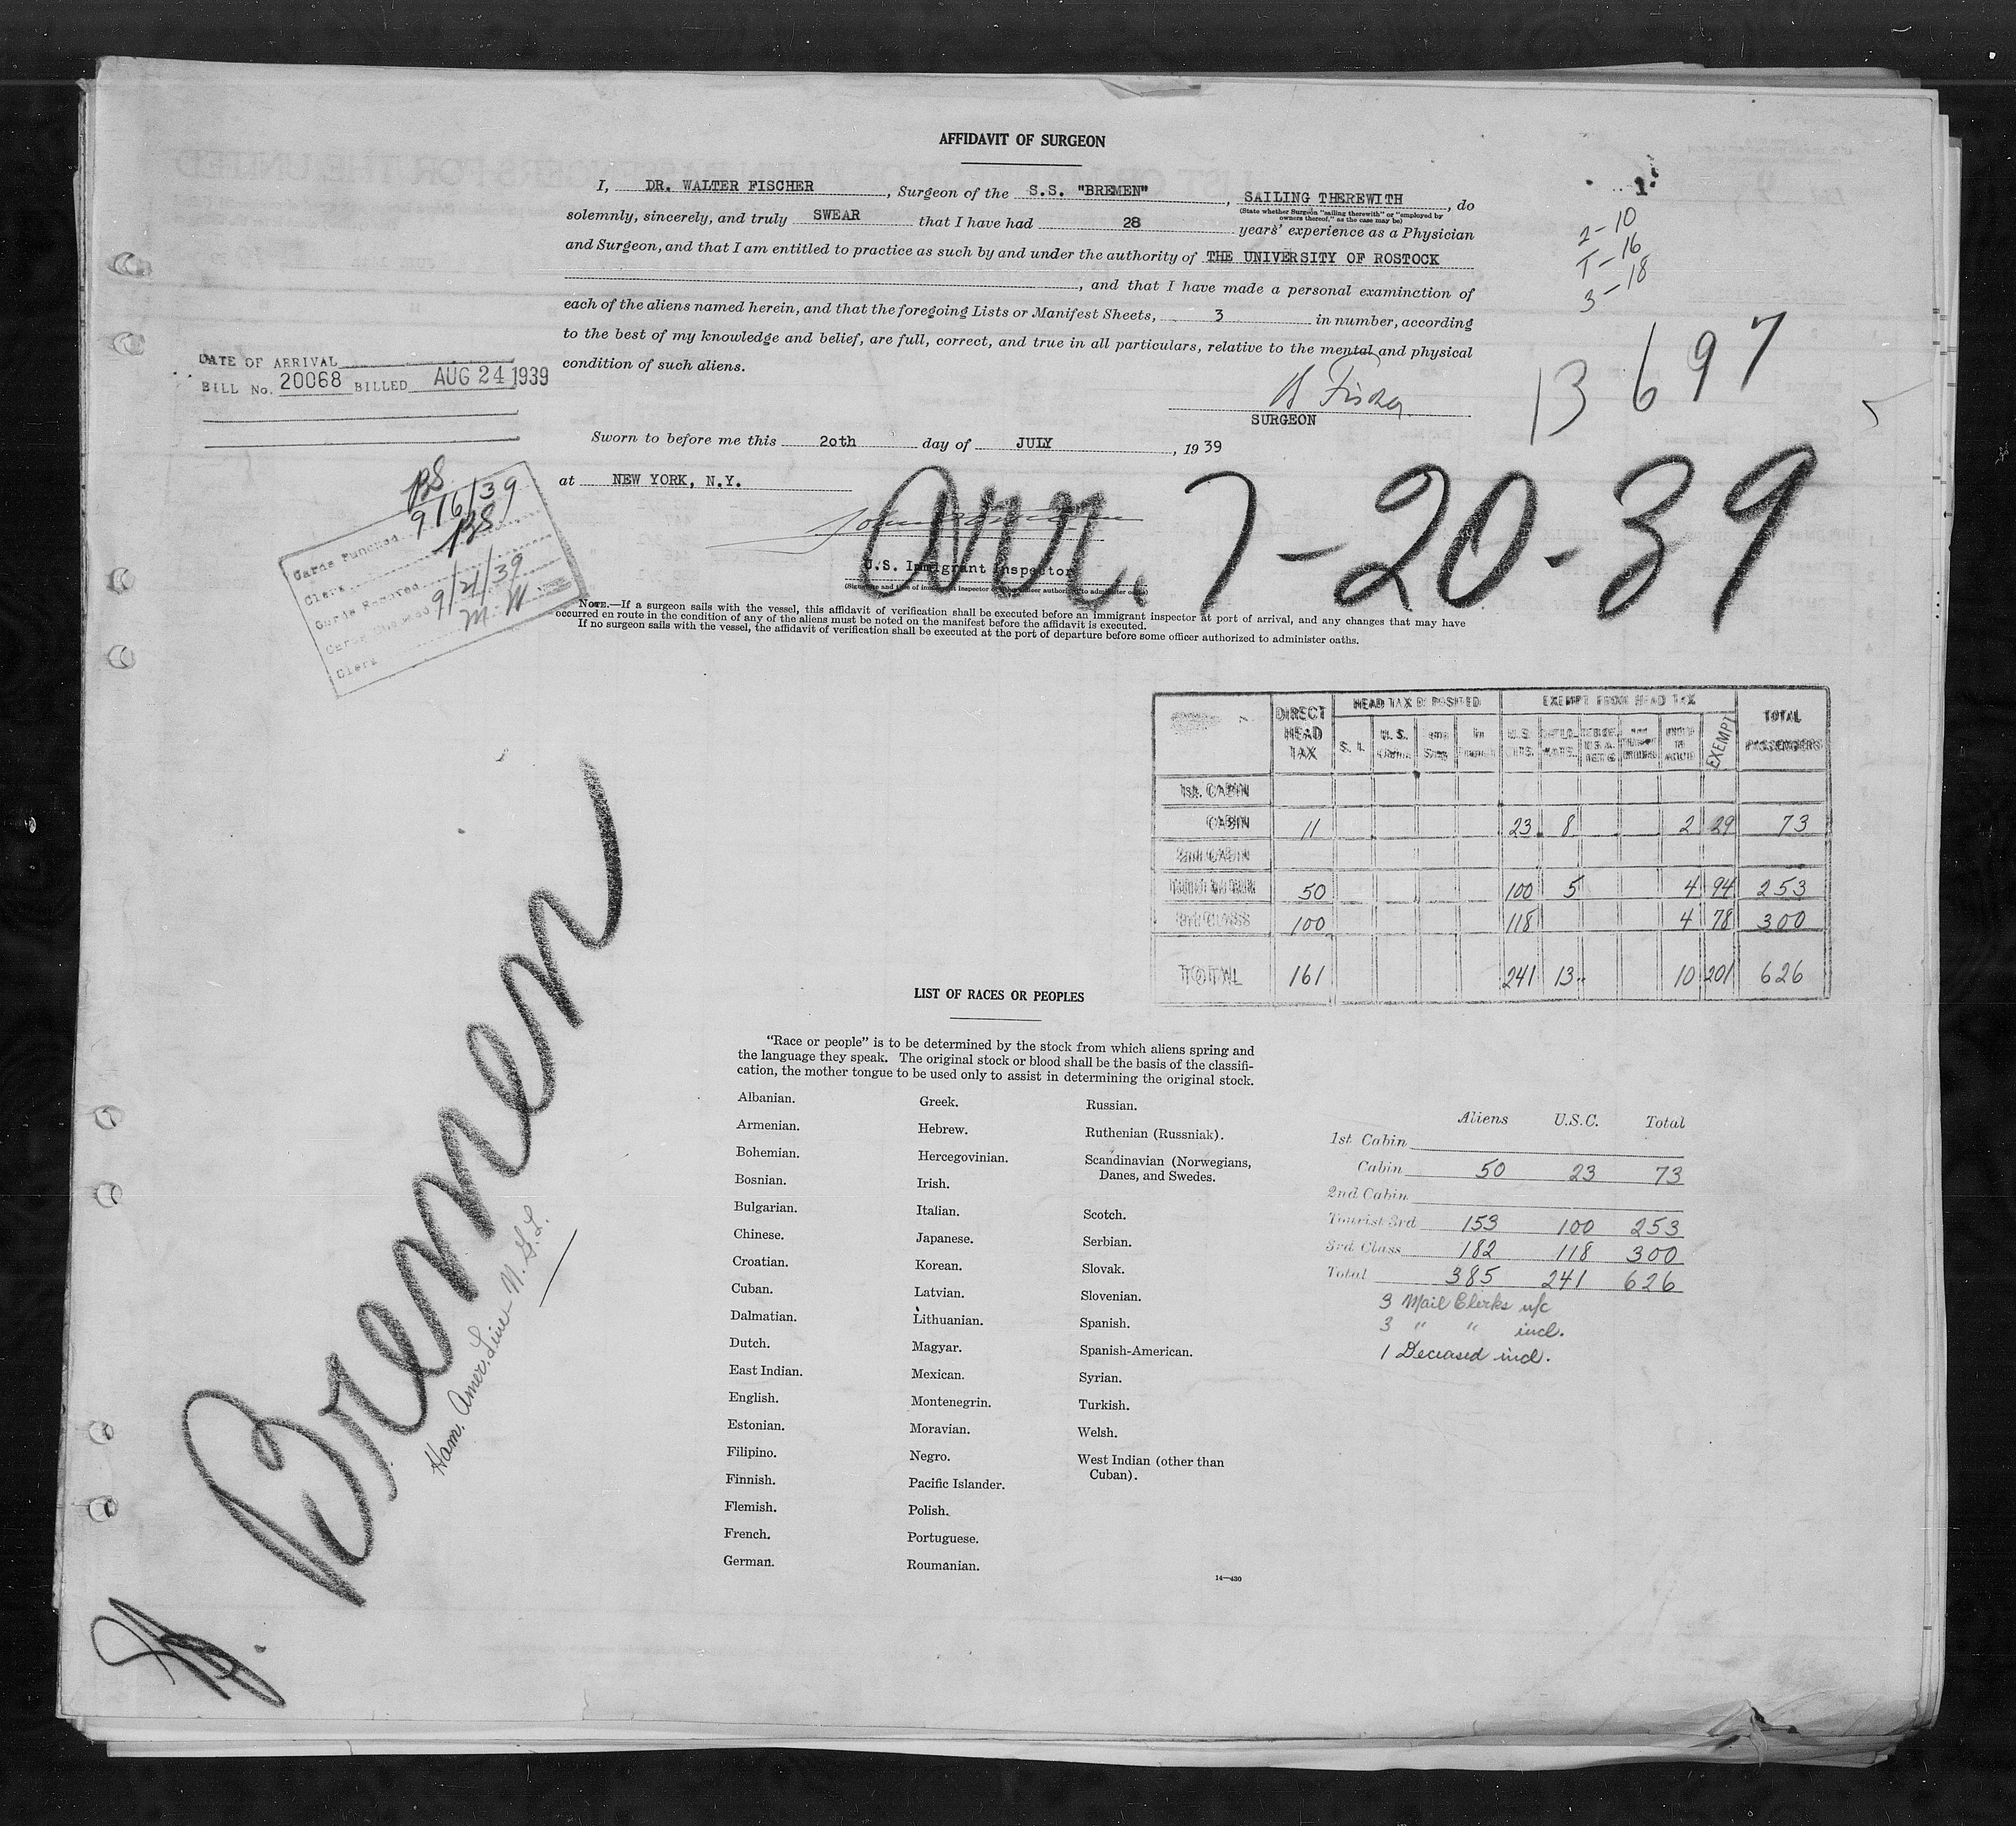 AFFIDAVIT OF SURGEON
I, DR. WALTER FISCHER, Surgeon of the S.S. "BREMEN", SAILING THEREWITH, do
(State whether Surgeon "sailing therewith" or "employed by owners thereof," as the case may be)
solemnly, sincerely, and truly SWEAR that I have had 28 years' experience as a Physician
and Surgeon, and that I am entitled to practice as such by and under the authority of THE UNIVERSITY OF ROSTOCK
, and that I have made a personal examination of
each of the aliens named herein, and that the foregoing Lists or Manifest Sheets, 3 in number, according
to the best of my knowledge and belief, are full, correct, and true in all particulars, relative to the mental and physical
condition of such aliens.
1
2-10
T-16
3-18
13697
DATE OF ARRIVAL
BILL No. 20068 BILLED AUG 24 1939
W Fischer
SURGEON
Sworn to before me this 20th day of JULY, 1939
at NEW YORK, N.Y.
Arr. 7-20-39
U.S. Immigrant Inspector
(Signature and title of immigrant inspector or other officer authorized to administer oaths)
Cards Punched 9/16/39
Clerk
Cards Removed
9/21/39
Clerk
NOTE.—If a surgeon sails with the vessel, this affidavit of verification shall be executed before an immigrant inspector at port of arrival, and any changes that may have
occurred en route in the condition of any of the aliens must be noted on the manifest before the affidavit is executed.
If no surgeon sails with the vessel, the affidavit of verification shall be executed at the port of departure before some officer authorized to administer oaths.
DIRECT HEAD TAX HEAD TAX DEPOSITED EXEMPT FROM HEAD TAX TOTAL PASSENGERS
S. I. U.S. U.S. CITS. EXEMPT
1st. CABIN
CABIN 11 23 8 2 29 73
2nd CABIN
50 100 5 4 94 253
3rd CLASS 100 118 4 78 300
TOTAL 161 241 13 10 201 626
Bremen
Ham. Amer. Line N.G.L.
LIST OF RACES OR PEOPLES
"Race or people" is to be determined by the stock from which aliens spring and
the language they speak. The original stock or blood shall be the basis of the classifi-
cation, the mother tongue to be used only to assist in determining the original stock.
Albanian.
Armenian.
Bohemian.
Bosnian.
Bulgarian.
Chinese.
Croatian.
Cuban.
Dalmatian.
Dutch.
East Indian.
English.
Estonian.
Filipino.
Finnish.
Flemish.
French.
German.
Greek.
Hebrew.
Hercegovinian.
Irish.
Italian.
Japanese.
Korean.
Latvian.
Lithuanian.
Magyar.
Mexican.
Montenegrin.
Moravian.
Negro.
Pacific Islander.
Polish.
Portuguese.
Roumanian.
Russian.
Ruthenian (Russniak).
Scandinavian (Norwegians,
Danes, and Swedes.
Scotch.
Serbian.
Slovak.
Slovenian.
Spanish.
Spanish-American.
Syrian.
Turkish.
Welsh.
West Indian (other than
Cuban).
14—430
Aliens U.S.C. Total
1st Cabin
Cabin 50 23 73
2nd Cabin
Tourist 3rd 153 100 253
3rd Class 182 118 300
Total 385 241 626
3 Mail Clerks n/c
3 " " incl.
1 Deceased incl.